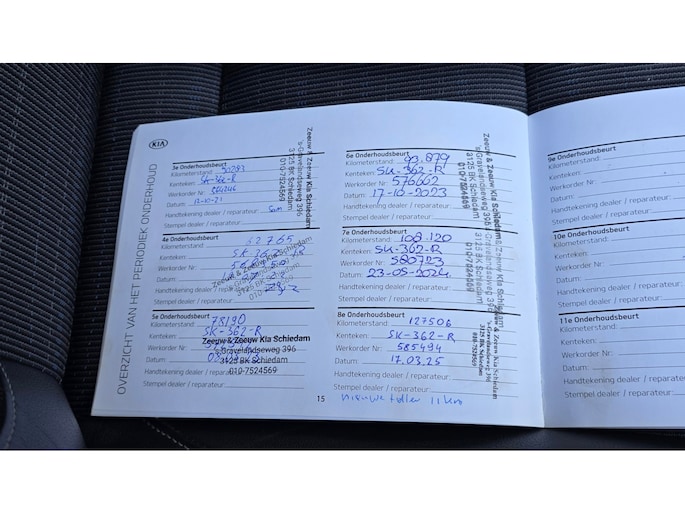 KIA
OVERZICHT VAN HET PERIODIEK ONDERHOUD
3e Onderhoudsbeurt
Kilometerstand:
Kenteken: SK-362-R
Werkorder Nr:
Datum: 12-10-21
Handtekening dealer / reparateur:
Stempel dealer / reparateur:
Zeeuw & Zeeuw Kia Schiedam
's-Gravelandseweg 396
3125 BK Schiedam
010-7524569
4e Onderhoudsbeurt
Kilometerstand: 62765
Kenteken:
Werkorder Nr:
Datum:
Handtekening dealer / reparateur:
Stempel dealer / reparateur:
Zeeuw & Zeeuw Kia Schiedam
3125 BK Schiedam
5e Onderhoudsbeurt
Kilometerstand: 78190
Kenteken: SK-362-R
Werkorder Nr:
Datum:
Handtekening dealer / reparateur:
Stempel dealer / reparateur:
Zeeuw & Zeeuw Kia Schiedam
's-Gravelandseweg 396
3125 BK Schiedam
010-7524569
15
6e Onderhoudsbeurt
Kilometerstand: 93.879
Kenteken: SK-362-R
Werkorder Nr: 576602
Datum: 17-10-2023
Handtekening dealer / reparateur:
Stempel dealer / reparateur:
Zeeuw & Zeeuw Kia Schiedam
's-Gravelandseweg 396
3125 BK Schiedam
010-7524569
7e Onderhoudsbeurt
Kilometerstand: 108.120
Kenteken: SK-362-R
Werkorder Nr: 580723
Datum: 23-05-2024
Handtekening dealer / reparateur:
Stempel dealer / reparateur:
8e Onderhoudsbeurt
Kilometerstand: 127506
Kenteken: SK-362-R
Werkorder Nr: 585494
Datum: 17.03.25
Handtekening dealer / reparateur:
Stempel dealer / reparateur:
nieuwe teller 11 km
9e Onderhoudsbeurt
Kilometerstand:
Kenteken:
Werkorder Nr:
Datum:
Handtekening dealer /
Stempel dealer / reparateur:
10e Onderhoudsbeurt
Kilometerstand:
Kenteken:
Werkorder Nr:
Datum:
Handtekening dealer / reparateur:
Stempel dealer / reparateur:
11e Onderhoudsbeurt
Kilometerstand:
Kenteken:
Werkorder Nr:
Datum:
Handtekening dealer / reparateur:
Stempel dealer / reparateur: